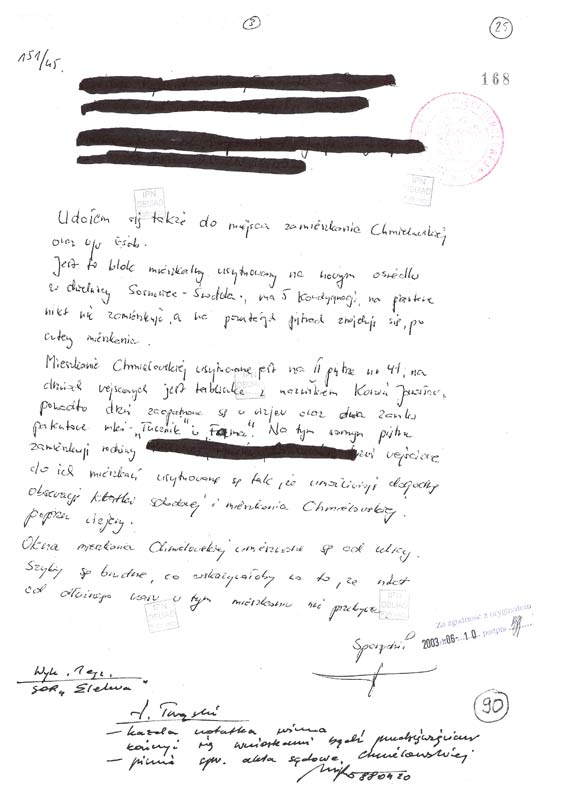 8
25
151/45.
168
IPN
OBUiAD
IPN
OBUiAD
Udałem się także do miejsca zamieszkania Chmielowskiej
oraz w/w osób.
Jest to blok mieszkalny usytuowany na nowym osiedlu
w dzielnicy Sosnowiec-Środula, ma 5 kondygnacji, na parterze
nikt nie zamieszkuje, a na pozostałych piętrach znajdują się, po
cztery mieszkania.
Mieszkanie Chmielowskiej usytuowane jest na II piętrze nr 41, na
drzwiach wejściowych jest tabliczka z nazwiskiem
ponadto drzwi zaopatrzone są w wizjer oraz dwa zamki
patentowe marki "Łucznik" i "Fama". Na tym samym piętrze
zamieszkują rodziny wejściowe
do ich mieszkań usytuowane są tak, że umożliwiają dogodną
obserwację klatki schodowej i mieszkania Chmielowskiej
poprzez wizjery.
Okna mieszkania Chmielowskiej umieszczone są od ulicy.
Szyby są brudne, co wskazywałoby na to, że nikt
od dłuższego czasu w tym mieszkaniu nie przebywa.
IPN
OBUiAD
IPN
OBUiAD
Za zgodność z oryginałem
2003 -06- 10. podpis
Sporządził
Wyk. 1 egz.
90
- każda notatka winna
kończyć się wnioskami bądź przedsięwzięciem
- pismo spr. akta sądowe Chmielowskiej
880420